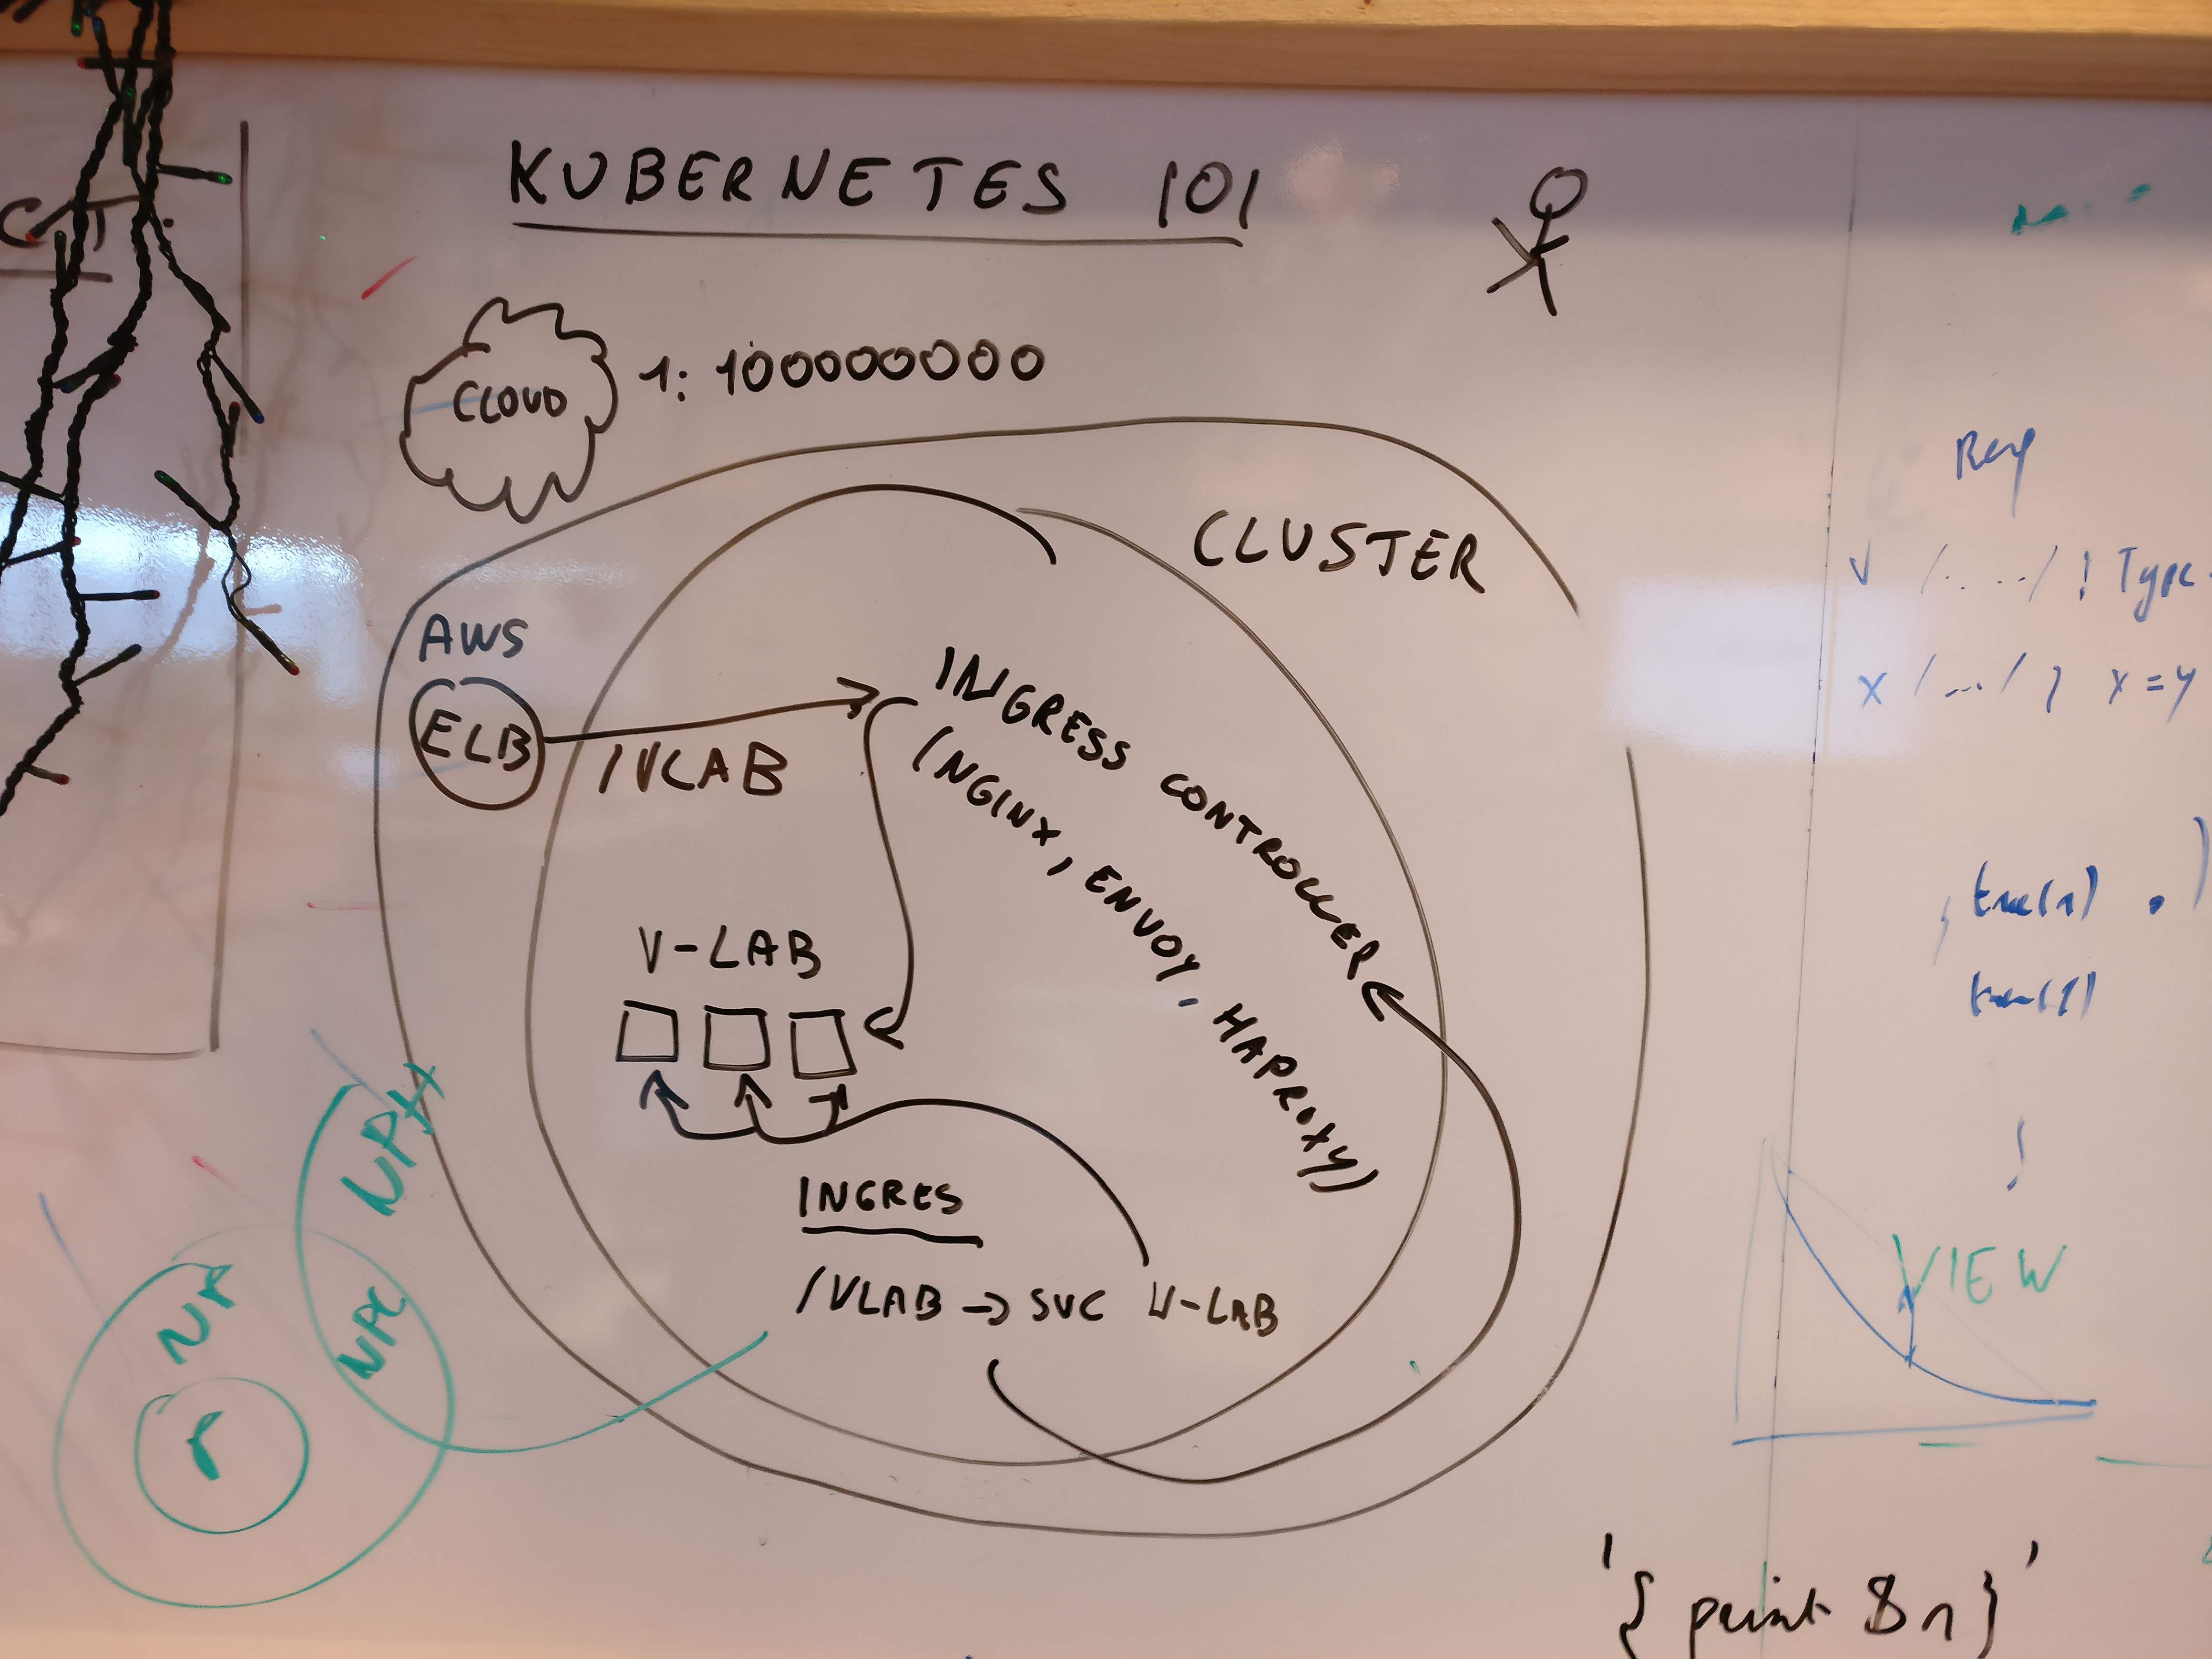 KUBERNETES 101
CLOUD 1: 100000000
CLUSTER
AWS
ELB
/VLAB
INGRESS CONTROLLER
(NGINX, ENVOY, HAPROXY)
V-LAB
INGRES
/VLAB → SVC V-LAB
NPH
NP
NPC
r
! Type
x /.../ ? x=y
VIEW
'{ print $1 }'